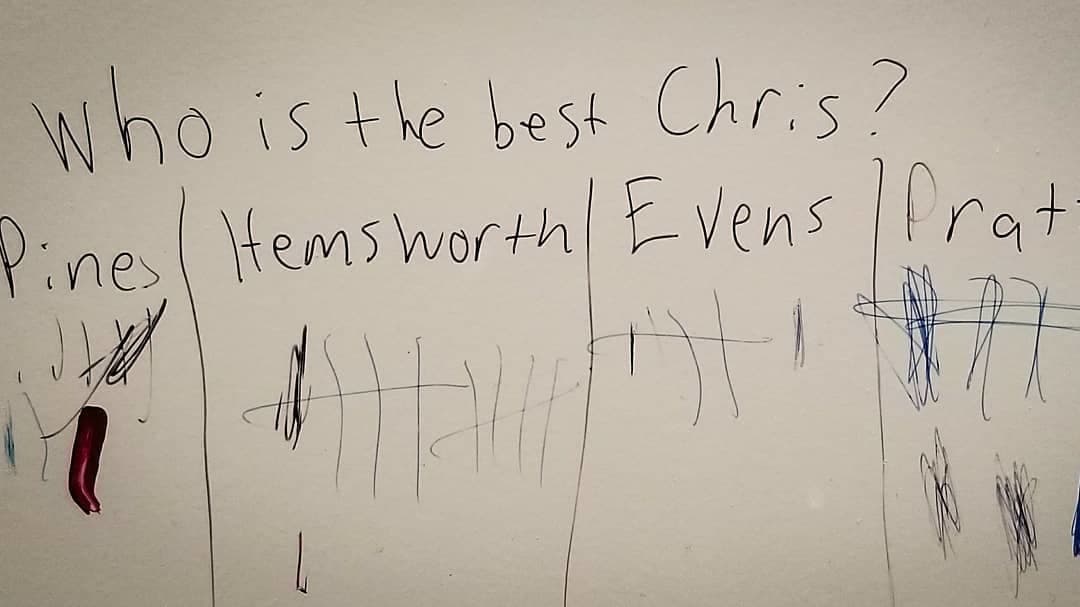 Who is the best Chris?
Pines Hemsworth Evens Prat